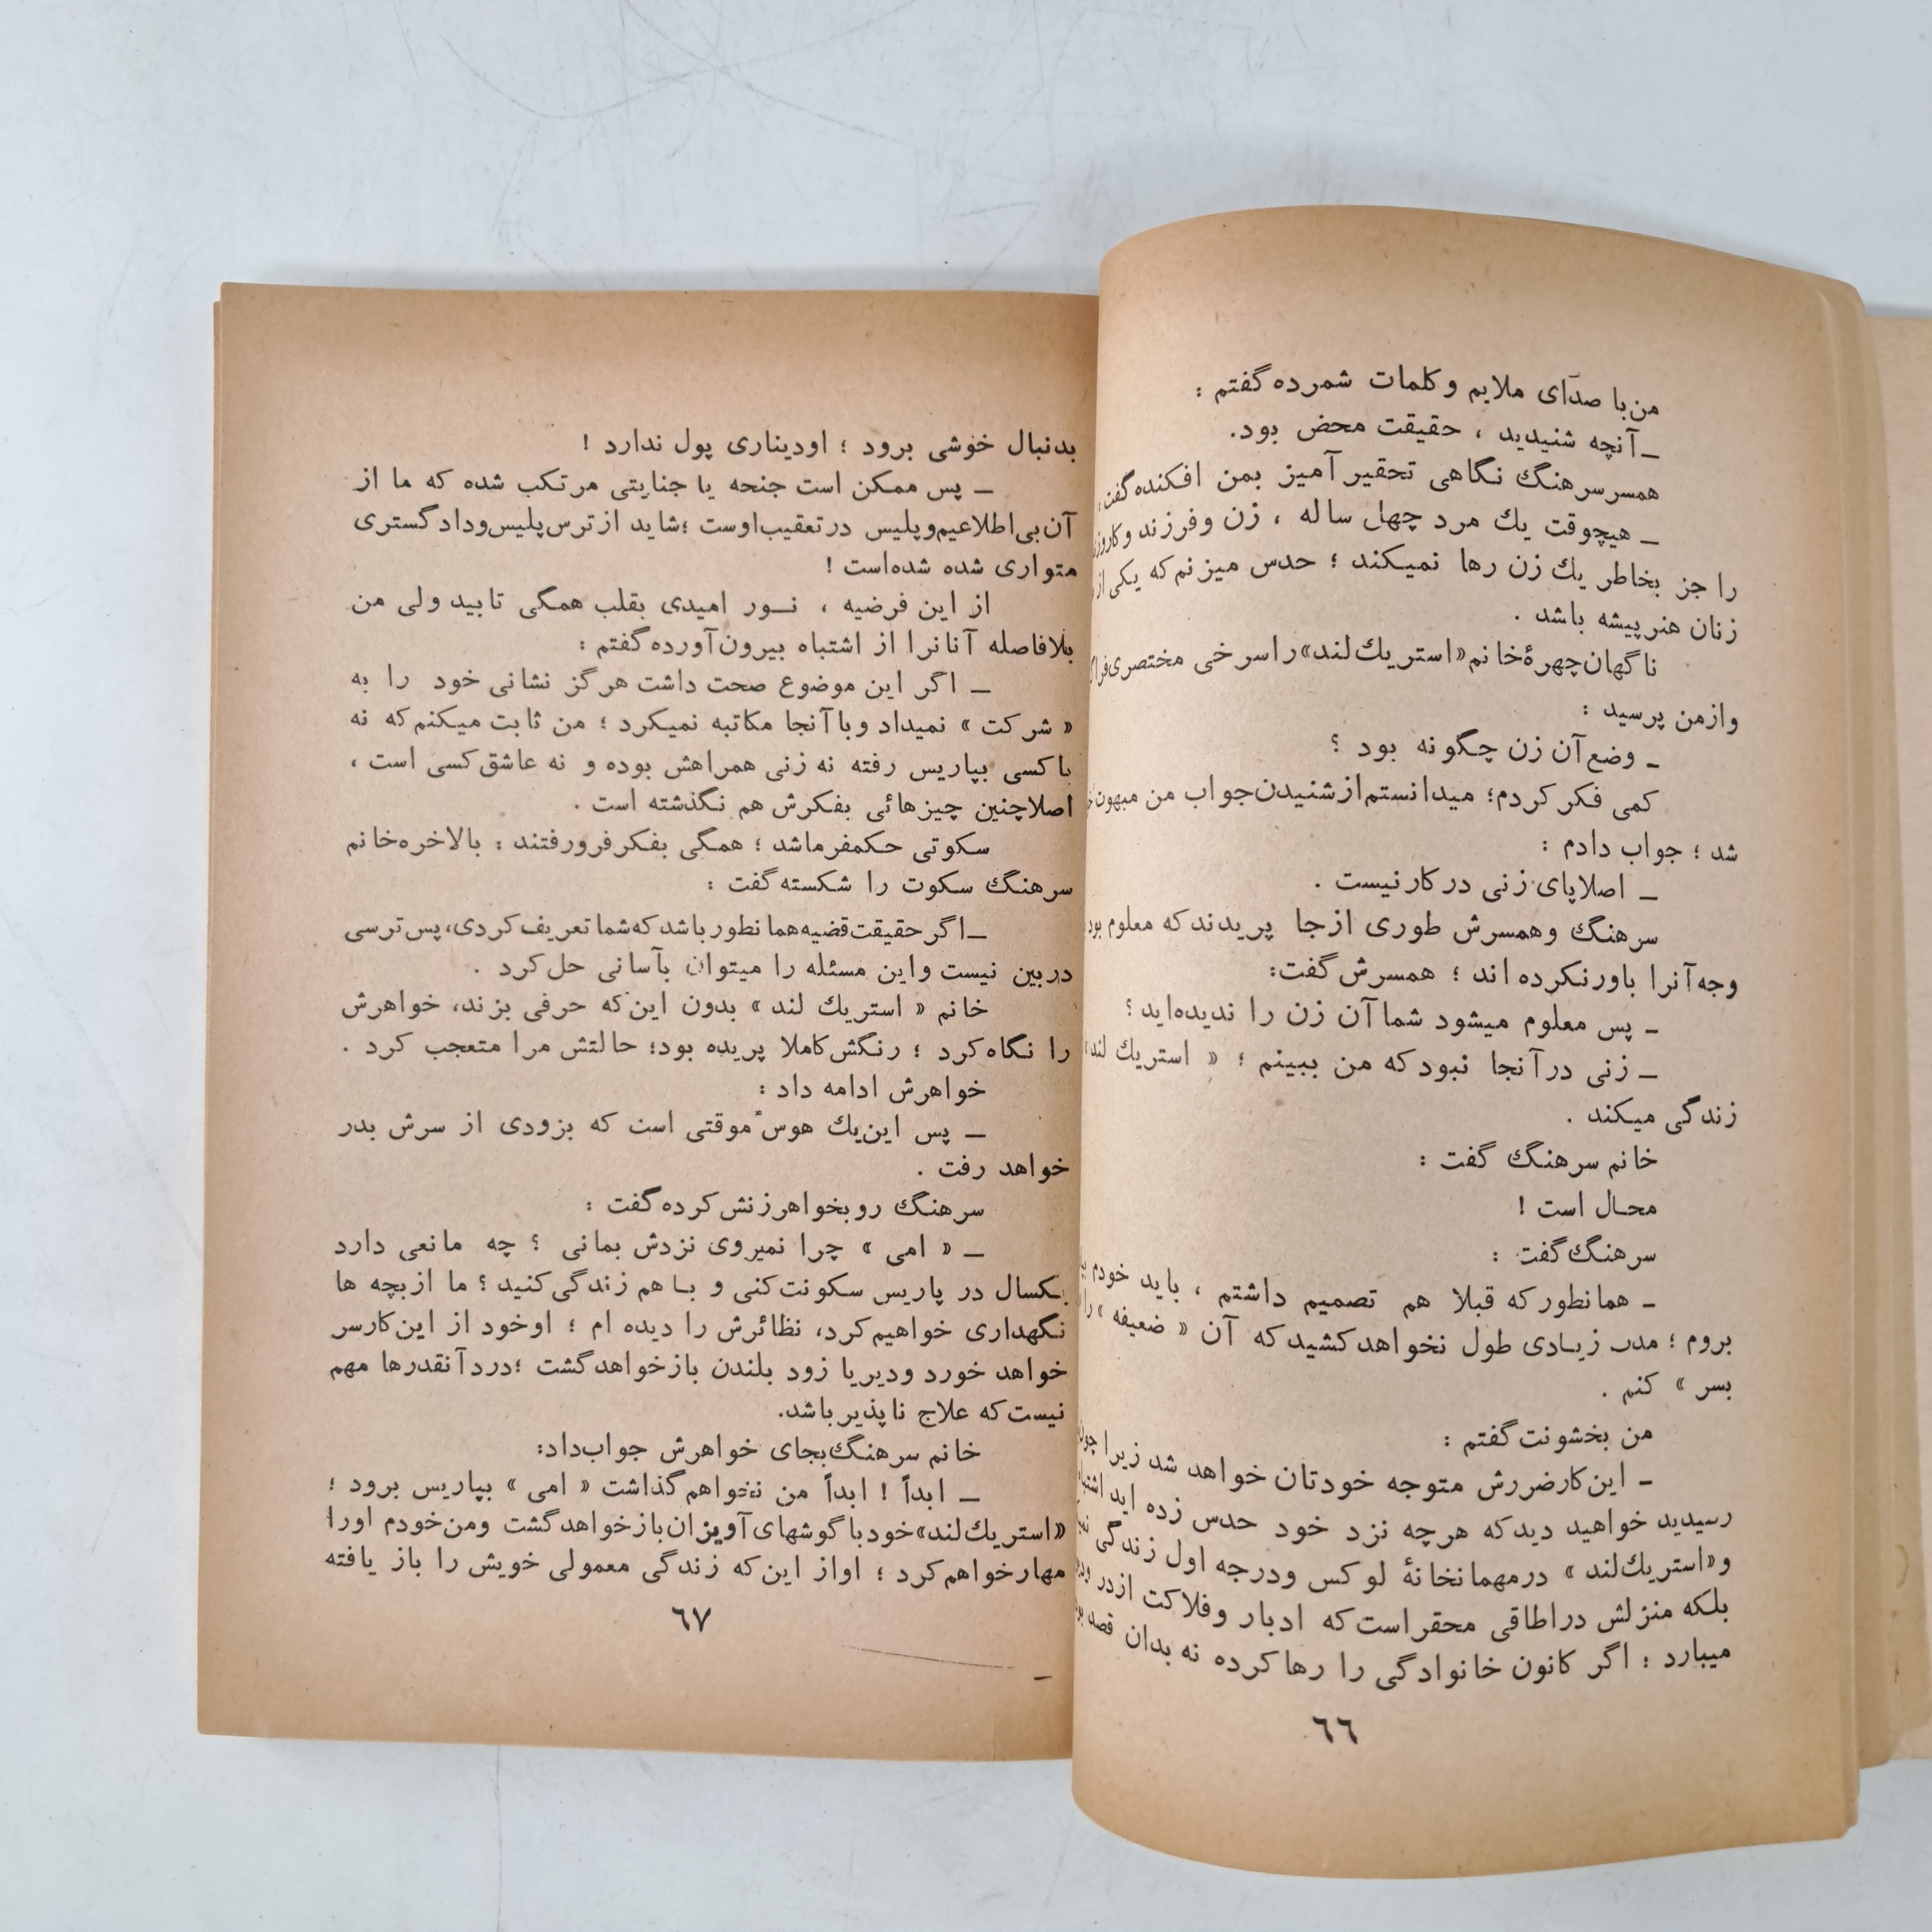 من با صدای ملایم و کلمات شمرده گفتم :
ـ آنچه شنیدید ، حقیقت محض بود.
همسر سرهنگ نگاهی تحقیر آمیز بمن افکنده گفت :
ـ هیچوقت یك مرد چهل ساله ، زن و فرزند و کار
را جز بخاطر یك زن رها نمیکند ؛ حدس میزنم که یکی از
زنان هنرپیشه باشد .
ناگهان چهرهٔ خانم «استریك لند» را سرخی مختصری
و از من پرسید :
ـ وضع آن زن چگونه بود ؟
کمی فکر کردم؛ میدانستم از شنیدن جواب من مبهوت
شد ؛ جواب دادم :
ـ اصلا پای زنی در کار نیست .
سرهنگ و همسرش طوری از جا پریدند که معلوم بود
وجه آنرا باور نکرده اند ؛ همسرش گفت:
ـ پس معلوم میشود شما آن زن را ندیده‌اید ؟
ـ زنی در آنجا نبود که من ببینم ؛ « استریك لند»
زندگی میکند .
خانم سرهنگ گفت :
محال است !
سرهنگ گفت :
ـ همانطور که قبلا هم تصمیم داشتم ، باید خودم
بروم ؛ مدت زیادی طول نخواهد کشید که آن « ضعیفه » را
بسر » کنم .
من بخشونت گفتم :
ـ این کار ضررش متوجه خودتان خواهد شد زیرا چون
رسیدید خواهید دید که هر چه نزد خود حدس زده اید
و «استریك لند » در مهمانخانهٔ لوکس و درجه اول زندگی
بلکه منزلش در اطاقی محقر است که ادبار و فلاکت از در
میبارد ؛ اگر کانون خانوادگی را رها کرده نه بدان قصد
٦٦
بدنبال خوشی برود ؛ او دیناری پول ندارد !
ـ پس ممکن است جنحه یا جنایتی مرتکب شده که ما از
آن بی اطلاعیم و پلیس در تعقیب اوست ؛ شاید از ترس پلیس و دادگستری
متواری شده شده است !
از این فرضیه ، نور امیدی بقلب همگی تابید ولی من
بلافاصله آنانرا از اشتباه بیرون آورده گفتم :
ـ اگر این موضوع صحت داشت هرگز نشانی خود را به
« شرکت » نمیداد و با آنجا مکاتبه نمیکرد ؛ من ثابت میکنم که نه
با کسی بپاریس رفته نه زنی همراهش بوده و نه عاشق کسی است ،
اصلا چنین چیزهائی بفکرش هم نگذشته است .
سکوتی حکمفرما شد ؛ همگی بفکر فرو رفتند : بالاخره خانم
سرهنگ سکوت را شکسته گفت :
ـ اگر حقیقت قضیه همانطور باشد که شما تعریف کردی، پس ترسی
در بین نیست و این مسئله را میتوان بآسانی حل کرد .
خانم « استریك لند » بدون این که حرفی بزند، خواهرش
را نگاه کرد ؛ رنگش کاملا پریده بود؛ حالتش مرا متعجب کرد .
خواهرش ادامه داد :
ـ پس این یك هوس موقتی است که بزودی از سرش بدر
خواهد رفت .
سرهنگ رو بخواهر زنش کرده گفت :
ـ « امی » چرا نمیروی نزدش بمانی ؟ چه مانعی دارد
یکسال در پاریس سکونت کنی و با هم زندگی کنید ؟ ما از بچه ها
نگهداری خواهیم کرد، نظائرش را دیده ام ؛ او خود از این کار سر
خواهد خورد و دیر یا زود بلندن باز خواهد گشت ؛ درد آنقدرها مهم
نیست که علاج ناپذیر باشد.
خانم سرهنگ بجای خواهرش جواب داد:
ـ ابداً ! ابداً من نخواهم گذاشت « امی » بپاریس برود ؛
«استریك لند» خود با گوشهای آویزان باز خواهد گشت و من خودم اورا
مهار خواهم کرد ؛ او از این که زندگی معمولی خویش را باز یافته
٦٧